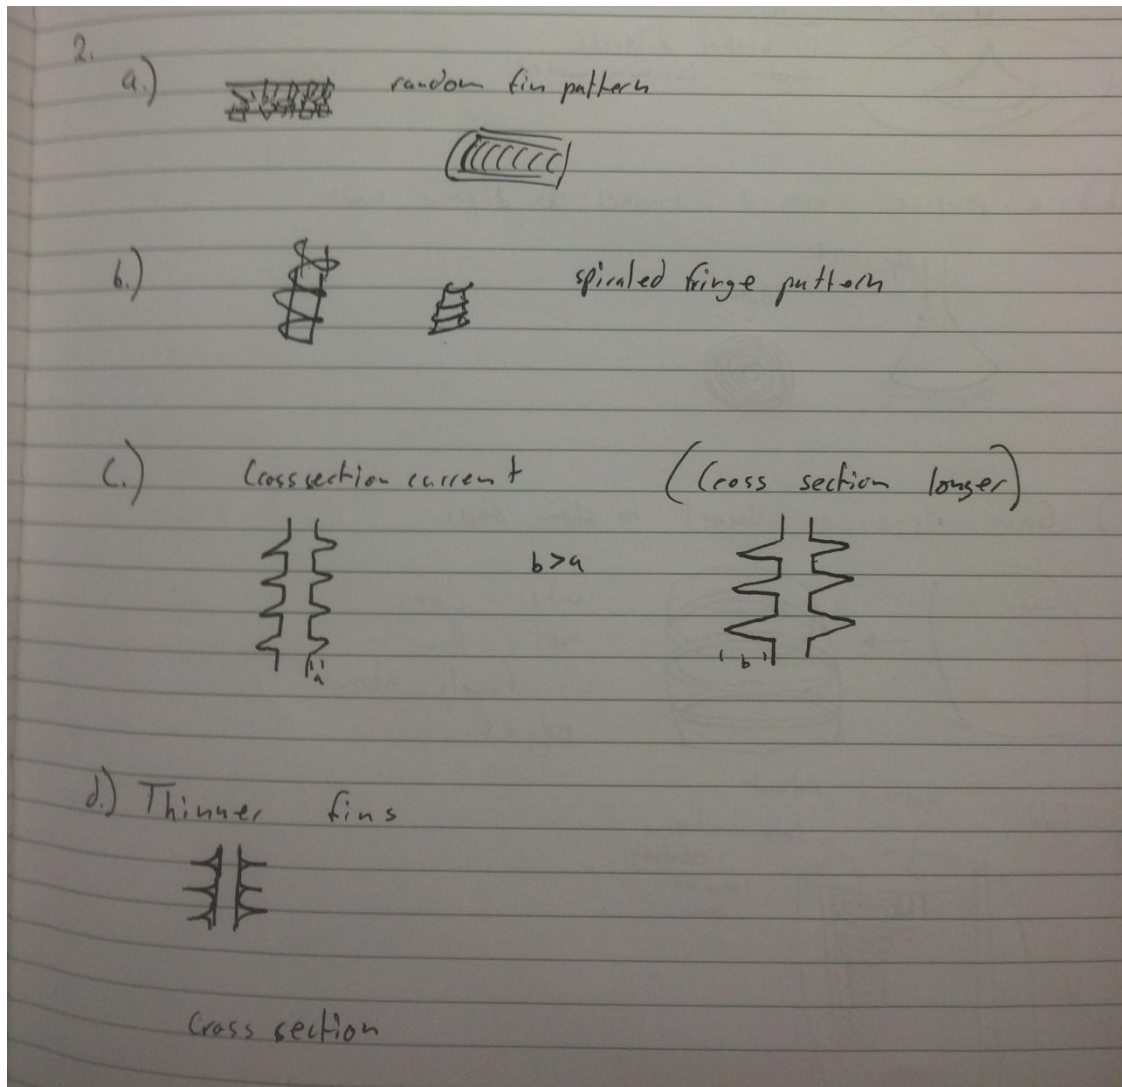 2.
a.) random fin pattern
b.) spiraled fringe pattern
c.) Cross section current (Cross section longer)
b>a
a
b
d.) Thinner fins
Cross section